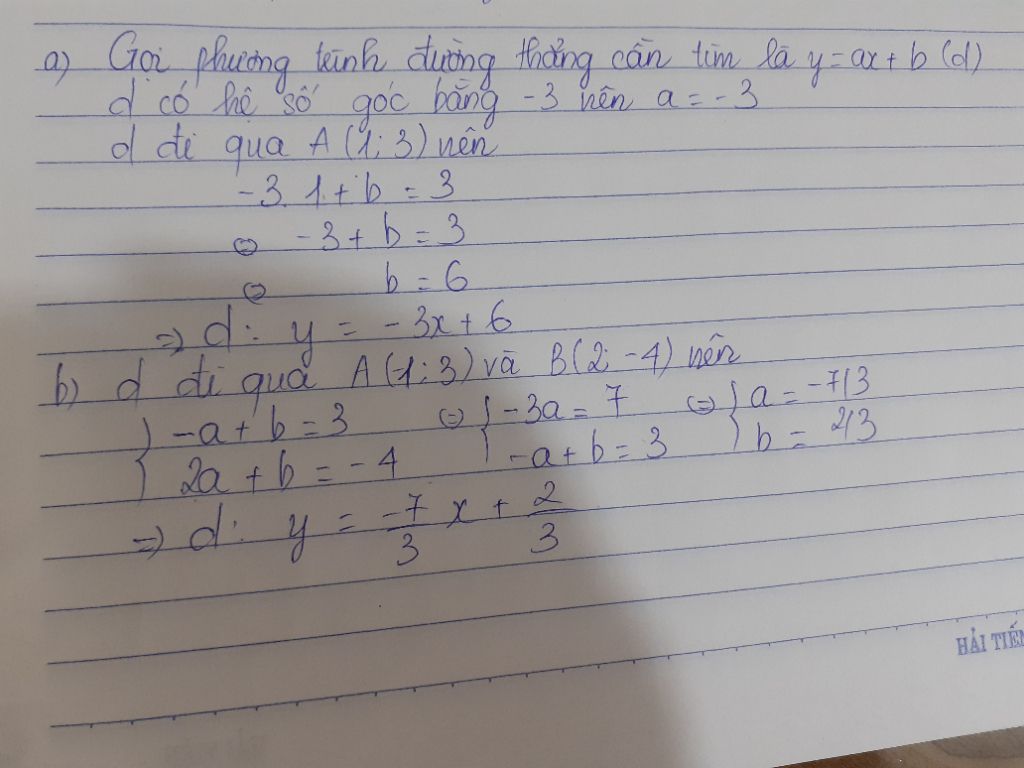 a) Gọi phương trình đường thẳng cần tìm là y=ax+b (d)
d có hệ số góc bằng -3 nên a = -3
d đi qua A (1; 3) nên
-3. 1 + b = 3
⇔ -3 + b = 3
⇔ b = 6
=> d: y = -3x + 6
b) d đi qua A (-1; 3) và B (2; -4) nên
{ -a + b = 3 ⇔ { -3a = 7 ⇔ { a = -7/3
2a + b = -4 -a + b = 3 b = 2/3
=> d: y = -7/3 x + 2/3
HẢI TIẾN